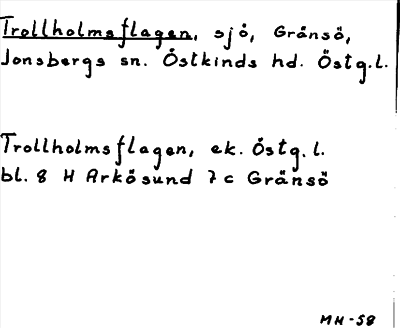 Trollholmsflagen, sjö, Gränsö,
Jonsbergs sn. Östkinds hd. Östg.l.
Trollholmsflagen, ek. Östg.l.
bl. 8 H Arkösund 7 c Gränsö
MH-58